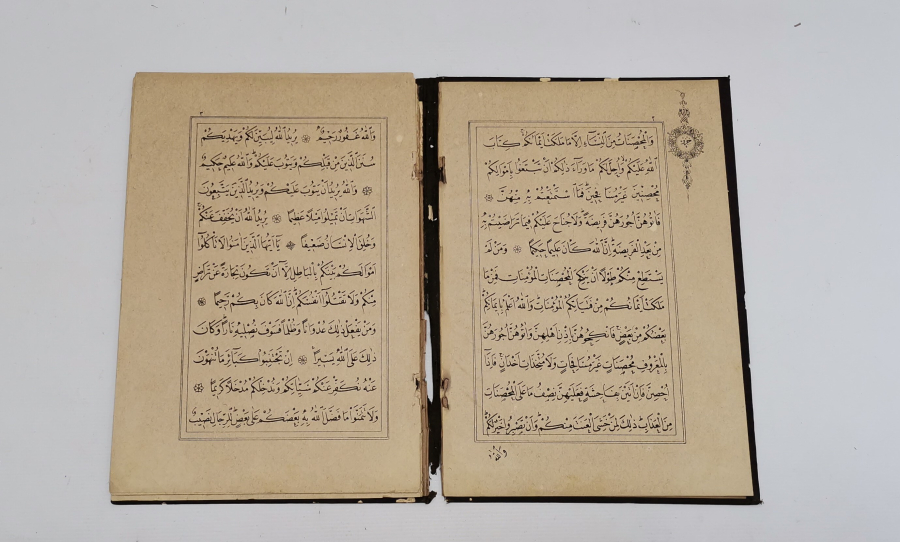 ٢
وَالْمُحْصَنَاتُ مِنَ النِّسَاءِ إِلَّا مَا مَلَكَتْ أَيْمَانُكُمْ كِتَابَ
اللَّهِ عَلَيْكُمْ وَأُحِلَّ لَكُمْ مَا وَرَاءَ ذَٰلِكُمْ أَنْ تَبْتَغُوا بِأَمْوَالِكُمْ
مُحْصِنِينَ غَيْرَ مُسَافِحِينَ فَمَا اسْتَمْتَعْتُمْ بِهِ مِنْهُنَّ
فَآتُوهُنَّ أُجُورَهُنَّ فَرِيضَةً وَلَا جُنَاحَ عَلَيْكُمْ فِيمَا تَرَاضَيْتُمْ بِهِ
مِنْ بَعْدِ الْفَرِيضَةِ إِنَّ اللَّهَ كَانَ عَلِيمًا حَكِيمًا وَمَنْ لَمْ
يَسْتَطِعْ مِنْكُمْ طَوْلًا أَنْ يَنْكِحَ الْمُحْصَنَاتِ الْمُؤْمِنَاتِ فَمِنْ مَا
مَلَكَتْ أَيْمَانُكُمْ مِنْ فَتَيَاتِكُمُ الْمُؤْمِنَاتِ وَاللَّهُ أَعْلَمُ بِإِيمَانِكُمْ
بَعْضُكُمْ مِنْ بَعْضٍ فَانْكِحُوهُنَّ بِإِذْنِ أَهْلِهِنَّ وَآتُوهُنَّ أُجُورَهُنَّ
بِالْمَعْرُوفِ مُحْصَنَاتٍ غَيْرَ مُسَافِحَاتٍ وَلَا مُتَّخِذَاتِ أَخْدَانٍ فَإِذَا
أُحْصِنَّ فَإِنْ أَتَيْنَ بِفَاحِشَةٍ فَعَلَيْهِنَّ نِصْفُ مَا عَلَى الْمُحْصَنَاتِ
مِنَ الْعَذَابِ ذَٰلِكَ لِمَنْ خَشِيَ الْعَنَتَ مِنْكُمْ وَأَنْ تَصْبِرُوا خَيْرٌ لَكُمْ
والله
٣
وَاللَّهُ غَفُورٌ رَحِيمٌ يُرِيدُ اللَّهُ لِيُبَيِّنَ لَكُمْ وَيَهْدِيَكُمْ
سُنَنَ الَّذِينَ مِنْ قَبْلِكُمْ وَيَتُوبَ عَلَيْكُمْ وَاللَّهُ عَلِيمٌ حَكِيمٌ
وَاللَّهُ يُرِيدُ أَنْ يَتُوبَ عَلَيْكُمْ وَيُرِيدُ الَّذِينَ يَتَّبِعُونَ
الشَّهَوَاتِ أَنْ تَمِيلُوا مَيْلًا عَظِيمًا يُرِيدُ اللَّهُ أَنْ يُخَفِّفَ عَنْكُمْ
وَخُلِقَ الْإِنْسَانُ ضَعِيفًا يَا أَيُّهَا الَّذِينَ آمَنُوا لَا تَأْكُلُوا
أَمْوَالَكُمْ بَيْنَكُمْ بِالْبَاطِلِ إِلَّا أَنْ تَكُونَ تِجَارَةً عَنْ تَرَاضٍ
مِنْكُمْ وَلَا تَقْتُلُوا أَنْفُسَكُمْ إِنَّ اللَّهَ كَانَ بِكُمْ رَحِيمًا
وَمَنْ يَفْعَلْ ذَٰلِكَ عُدْوَانًا وَظُلْمًا فَسَوْفَ نُصْلِيهِ نَارًا وَكَانَ
ذَٰلِكَ عَلَى اللَّهِ يَسِيرًا إِنْ تَجْتَنِبُوا كَبَائِرَ مَا تُنْهَوْنَ
عَنْهُ نُكَفِّرْ عَنْكُمْ سَيِّئَاتِكُمْ وَنُدْخِلْكُمْ مُدْخَلًا كَرِيمًا
وَلَا تَتَمَنَّوْا مَا فَضَّلَ اللَّهُ بِهِ بَعْضَكُمْ عَلَى بَعْضٍ لِلرِّجَالِ نَصِيبٌ